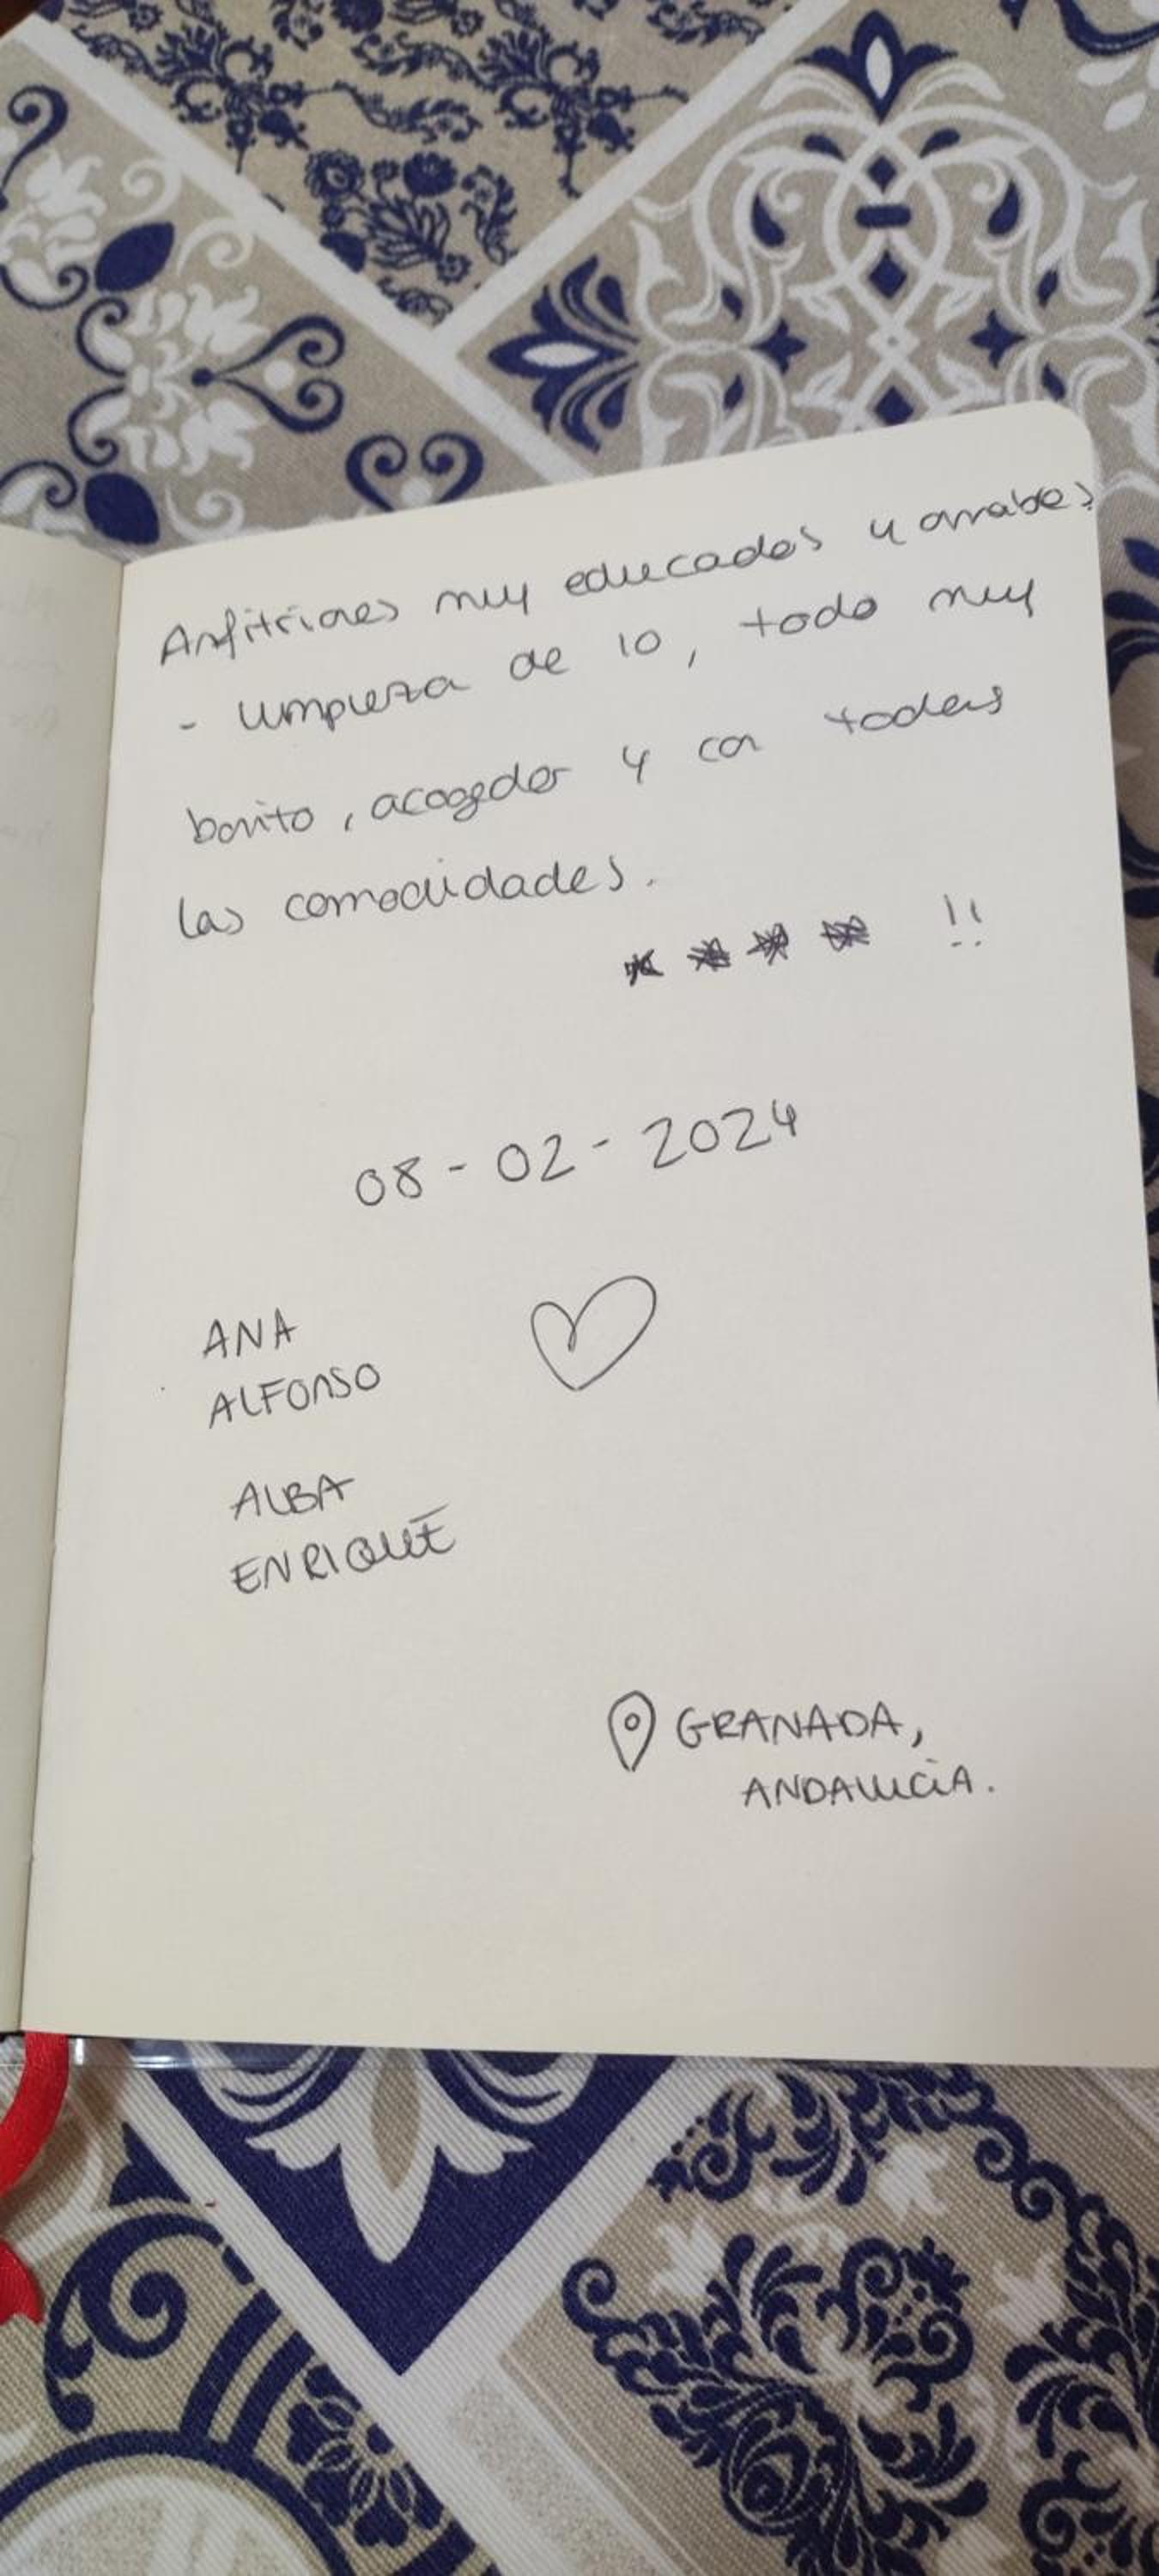 Anfitriones muy educados y amables
- Limpieza de 10, todo muy
bonito, acogedor y con todas
las comodidades.
!!
08-02-2024
ANA
ALFONSO
ALBA
ENRIQUE
GRANADA,
ANDALUCÍA.